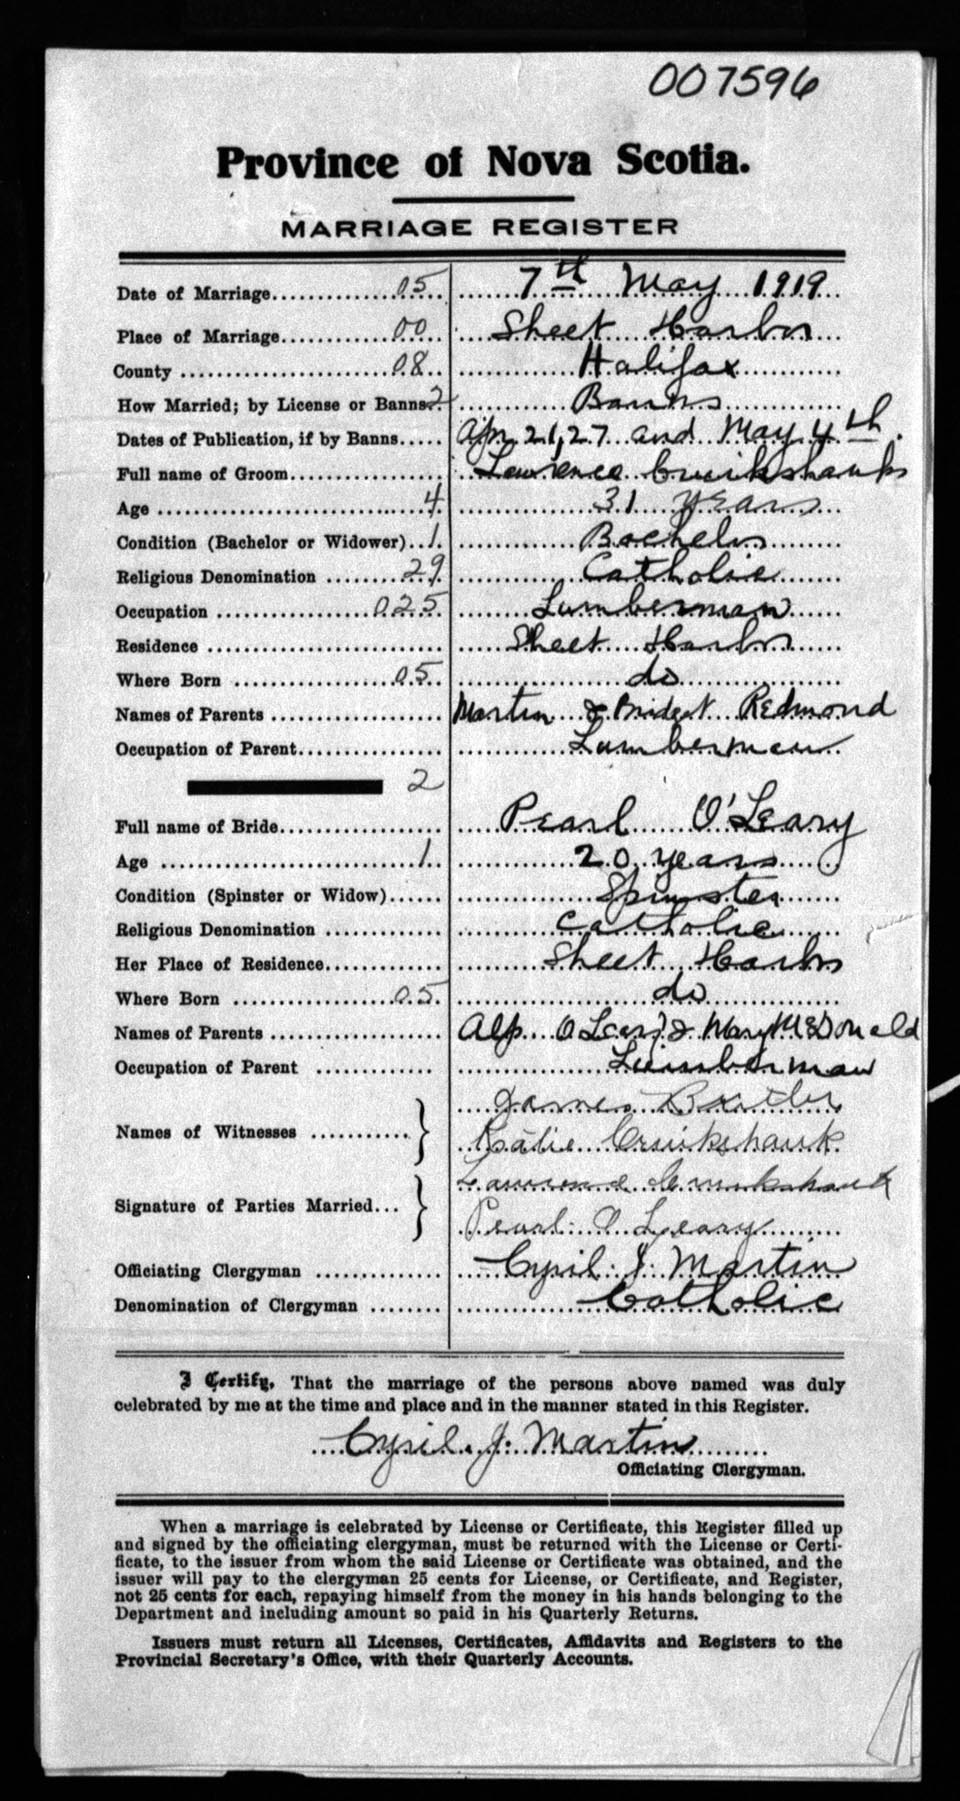 007596
Province of Nova Scotia.
MARRIAGE REGISTER
Date of Marriage 05 7th May 1919
Place of Marriage 00 Sheet Harbor
County 08 Halifax
How Married; by License or Banns 2 Banns
Dates of Publication, if by Banns Apr. 21, 27 and May 4th.
Full name of Groom Lawrence Cruikshanks
Age 4 31 years
Condition (Bachelor or Widower) 1 Bachelor
Religious Denomination 29 Catholic
Occupation 025 Lumberman
Residence Sheet Harbor
Where Born 05 do
Names of Parents Martin & Bridget Redmond
Occupation of Parent Lumberman
2
Full name of Bride Pearl O'Leary
Age 1 20 years
Condition (Spinster or Widow) Spinster
Religious Denomination Catholic
Her Place of Residence Sheet Harbor
Where Born 05 do
Names of Parents Alp. O'Leary & Mary McDonald
Occupation of Parent Lumberman
James Butler
Names of Witnesses
Katie Cruikshank
Lawrence Cruikshank
Signature of Parties Married
Pearl O'Leary
Officiating Clergyman Cyril J. Martin
Denomination of Clergyman Catholic
I Certify, That the marriage of the persons above named was duly
celebrated by me at the time and place and in the manner stated in this Register.
Cyril. J. Martin
Officiating Clergyman.
When a marriage is celebrated by License or Certificate, this Register filled up
and signed by the officiating clergyman, must be returned with the License or Certi-
ficate, to the issuer from whom the said License or Certificate was obtained, and the
issuer will pay to the clergyman 25 cents for License, or Certificate, and Register,
not 25 cents for each, repaying himself from the money in his hands belonging to the
Department and including amount so paid in his Quarterly Returns.
Issuers must return all Licenses, Certificates, Affidavits and Registers to the
Provincial Secretary's Office, with their Quarterly Accounts.